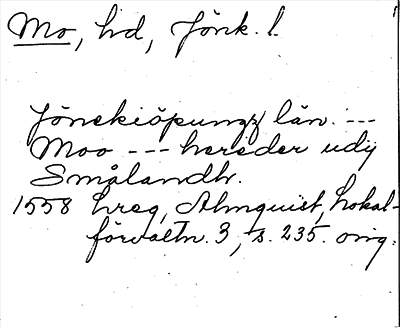 Mo, hd, Jönk. l.
Jönekiöpungz län. ---
Moo --- häreder udij
Smålandh.
1558 hreg, Almquist, Lokal-
förvaltn. 3, s. 235. orig.